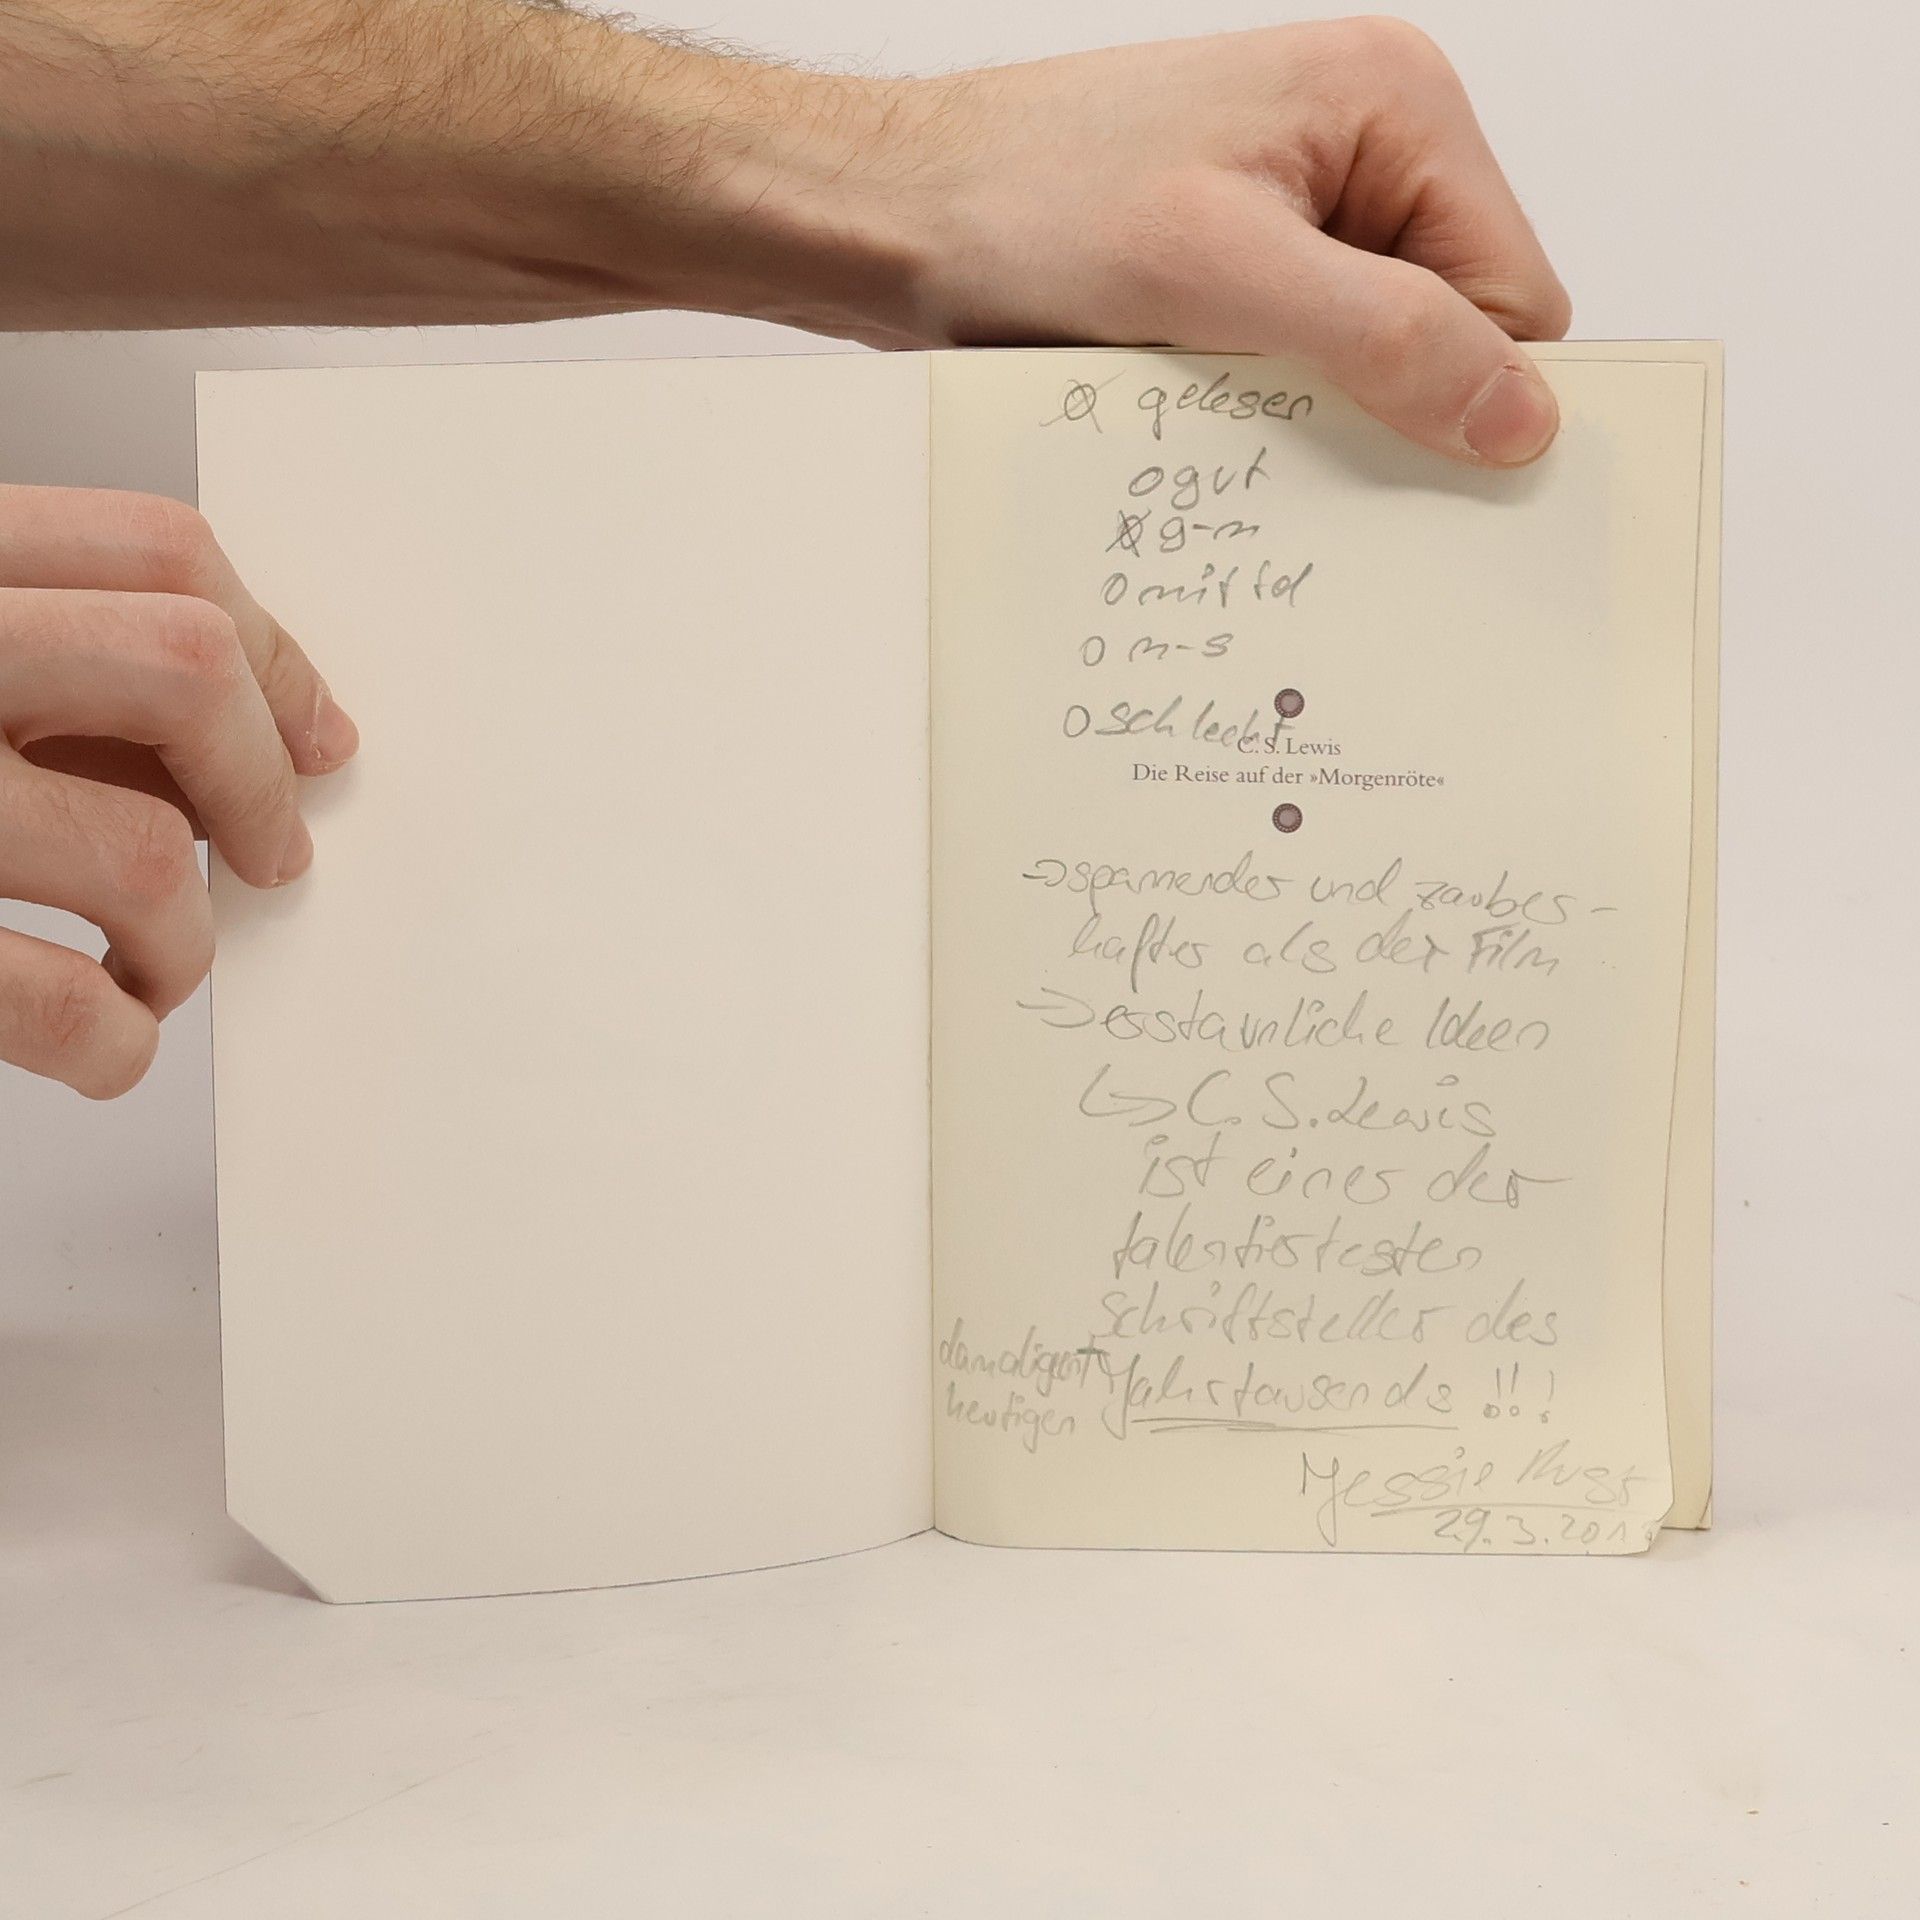 gelesen
O gut
g-m
O mittel
O m-s
O schlecht
C. S. Lewis
Die Reise auf der »Morgenröte«
→ spannender und zauber-
hafter als der Film
→ erstaunliche Ideen
↳ C. S. Lewis
ist einer der
talentiertesten
Schriftsteller des
damaligen +
heutigen
Jahrtausends !!!
Jessie
29.3.201